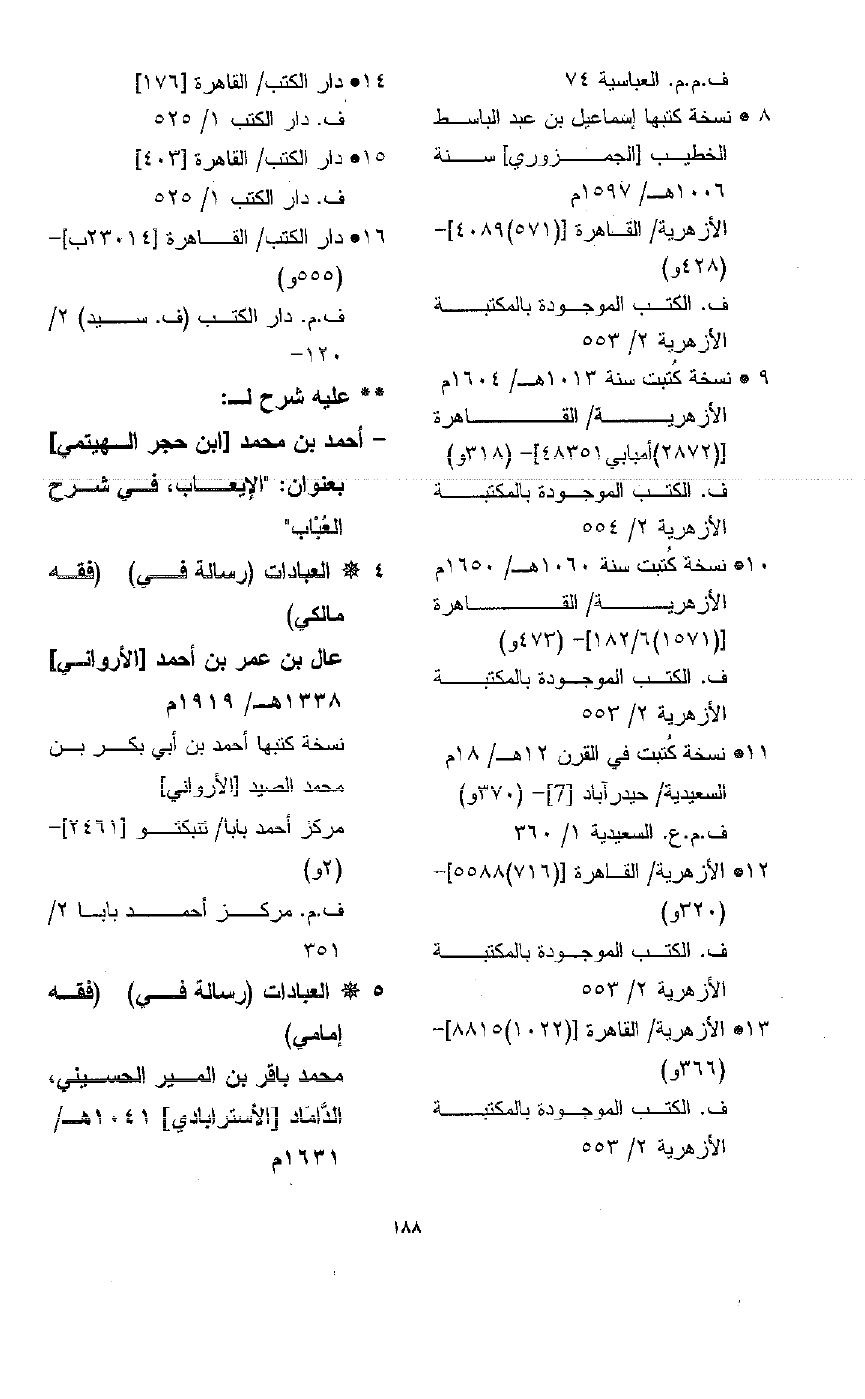 ف.م.م. العباسية ٧٤
٨ * نسخة كتبها إسماعيل بن عبد الباسط
الخطيب [الجمزوري] سنة
١٠٠٦هـ/ ١٥٩٧م
الأزهرية/ القاهرة [(٥٧١)٤٠٨٩]-
(٤٢٨و)
ف. الكتب الموجودة بالمكتبة
الأزهرية ٢/ ٥٥٣
٩ * نسخة كُتبت سنة ١٠١٣هـ/ ١٦٠٤م
الأزهرية/ القاهرة
[(٢٨٧٢)أمبابي٤٨٣٥١]- (٣١٨و)
ف. الكتب الموجودة بالمكتبة
الأزهرية ٢/ ٥٥٤
١٠* نسخة كُتبت سنة ١٠٦٠هـ/ ١٦٥٠م
الأزهرية/ القاهرة
[(١٥٧١)١٨٢/٦]- (٤٧٣و)
ف. الكتب الموجودة بالمكتبة
الأزهرية ٢/ ٥٥٣
١١* نسخة كُتبت في القرن ١٢هـ/ ١٨م
السعيدية/ حيدرآباد [7]- (٣٧٠و)
ف.م.ع. السعيدية ١/ ٣٦٠
١٢* الأزهرية/ القاهرة [(٧١٦)٥٥٨٨]-
(٣٢٠و)
ف. الكتب الموجودة بالمكتبة
الأزهرية ٢/ ٥٥٣
١٣* الأزهرية/ القاهرة [(١٠٢٢)٨٨١٥]-
(٣٦٦و)
ف. الكتب الموجودة بالمكتبة
الأزهرية ٢/ ٥٥٣
١٤* دار الكتب/ القاهرة [١٧٦]
ف. دار الكتب ١/ ٥٢٥
١٥* دار الكتب/ القاهرة [٤٠٣]
ف. دار الكتب ١/ ٥٢٥
١٦* دار الكتب/ القاهرة [٢٣٠١٤ب]-
(٥٥٥و)
ف.م. دار الكتب (ف. سيد) ٢/
١٢٠-
** عليه شرح لـ:
- أحمد بن محمد [ابن حجر الهيتمي]
بعنوان: "الإيعاب، في شرح
العُبَاب"
٤ * العبادات (رسالة في) (فقه
مالكي)
عال بن عمر بن أحمد [الأرواني]
١٣٣٨هـ/ ١٩١٩م
نسخة كتبها أحمد بن أبي بكر بن
محمد الصيد [الأرواني]
مركز أحمد بابا/ تنبكتو [٢٤٦١]-
(٢و)
ف.م. مركز أحمد بابا ٢/
٣٥١
٥ * العبادات (رسالة في) (فقه
إمامي)
محمد باقر بن المير الحسيني،
الدَّامَاد [الأسترابادي] ١٠٤١هـ/
١٦٣١م
١٨٨